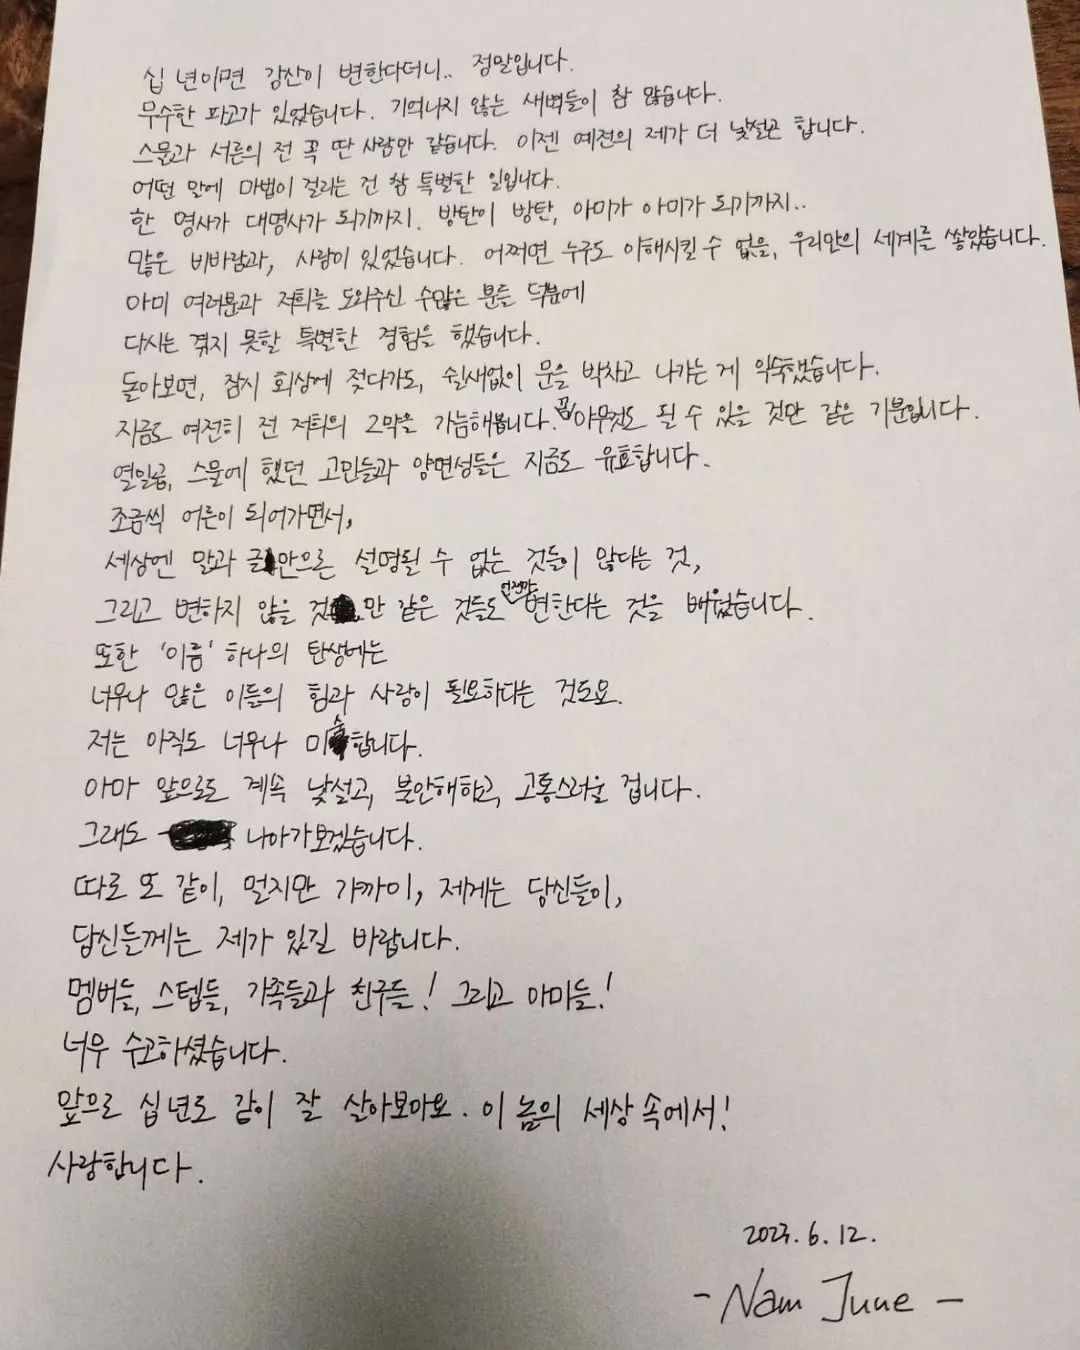 십 년이면 강산이 변한다더니.. 정말입니다.
무수한 파고가 있었습니다. 기억나지 않는 새벽들이 참 많습니다.
스물과 서른의 전 꼭 딴 사람만 같습니다. 이젠 예전의 제가 더 낯설곤 합니다.
어떤 말에 마법이 걸리는 건 참 특별한 일입니다.
한 명사가 대명사가 되기까지. 방탄이 방탄, 아미가 아미가 되기까지..
많은 비바람과, 사람이 있었습니다. 어쩌면 누구도 이해시킬 수 없을, 우리만의 세계를 쌓았습니다.
아미 여러분과 저희를 도와주신 수많은 분들 덕분에
다시는 겪지 못할 특별한 경험을 했습니다.
돌아보면, 잠시 회상에 젖다가도, 쉴새없이 문을 박차고 나가는 게 익숙했습니다.
지금도 여전히 전 저희의 2막을 가늠해봅니다. 꼭 아무것도 될 수 있을 것만 같은 기분입니다.
열일곱, 스물에 했던 고민들과 양면성들은 지금도 유효합니다.
조금씩 어른이 되어가면서,
세상엔 말과 글만으론 설명될 수 없는 것들이 많다는 것,
그리고 변하지 않을 것만 같은 것들도 언젠가 변한다는 것을 배웠습니다.
또한 '이름' 하나의 탄생에는
너무나 많은 이들의 힘과 사랑이 필요하다는 것도요.
저는 아직도 너무나 미숙합니다.
아마 앞으로도 계속 낯설고, 불안해하고, 고통스러울 겁니다.
그래도 나아가보겠습니다.
따로 또 같이, 멀지만 가까이, 제게는 당신들이,
당신들께는 제가 있길 바랍니다.
멤버들, 스텝들, 가족들과 친구들! 그리고 아미들!
너무 수고하셨습니다.
앞으로 십년도 같이 잘 살아보아요. 이 놈의 세상 속에서!
사랑합니다.
2023. 6. 12.
- Nam June -